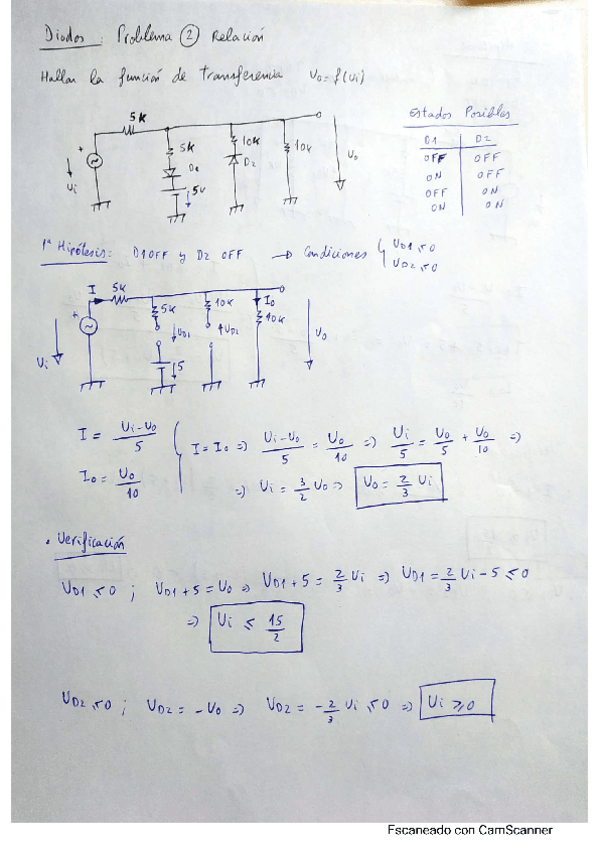 Diodos : Problema ② Relación
Hallar la función de transferencia Vo = f(Vi)
Estados Posibles
D1 D2
OFF OFF
ON OFF
OFF ON
ON ON
5K
5K
D1
5V
10K
D2
10K
Vo
+
Vi
1ª Hipótesis: D1 OFF y D2 OFF → Condiciones { VD1 ≤ 0
VD2 ≤ 0
I 5K
5K
VD1
5
10K
VD2
Io
10K
Vo
+
Vi
I = (Vi - Vo)/5
Io = Vo/10
I = Io => (Vi - Vo)/5 = Vo/10 => Vi/5 = Vo/5 + Vo/10 =>
=> Vi = 3/2 Vo => Vo = 2/3 Vi
• Verificación
VD1 ≤ 0 ; VD1 + 5 = Vo => VD1 + 5 = 2/3 Vi => VD1 = 2/3 Vi - 5 ≤ 0
=> Vi ≤ 15/2
VD2 ≤ 0 ; VD2 = -Vo => VD2 = -2/3 Vi ≤ 0 => Vi ≥ 0
Escaneado con CamScanner